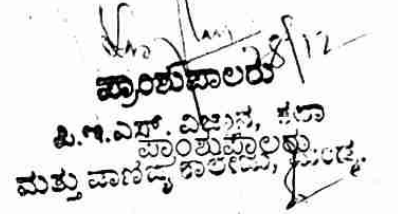 8/12
ಪ್ರಾಂಶುಪಾಲರು
ಪಿ.ಇ.ಎಸ್. ವಿಜ್ಞಾನ, ಕಲಾ
ಪ್ರಾಂಶುಪಾಲರು
ಮತ್ತು ವಾಣಿಜ್ಯ ಕಾಲೇಜು, ಮಂಡ್ಯ.